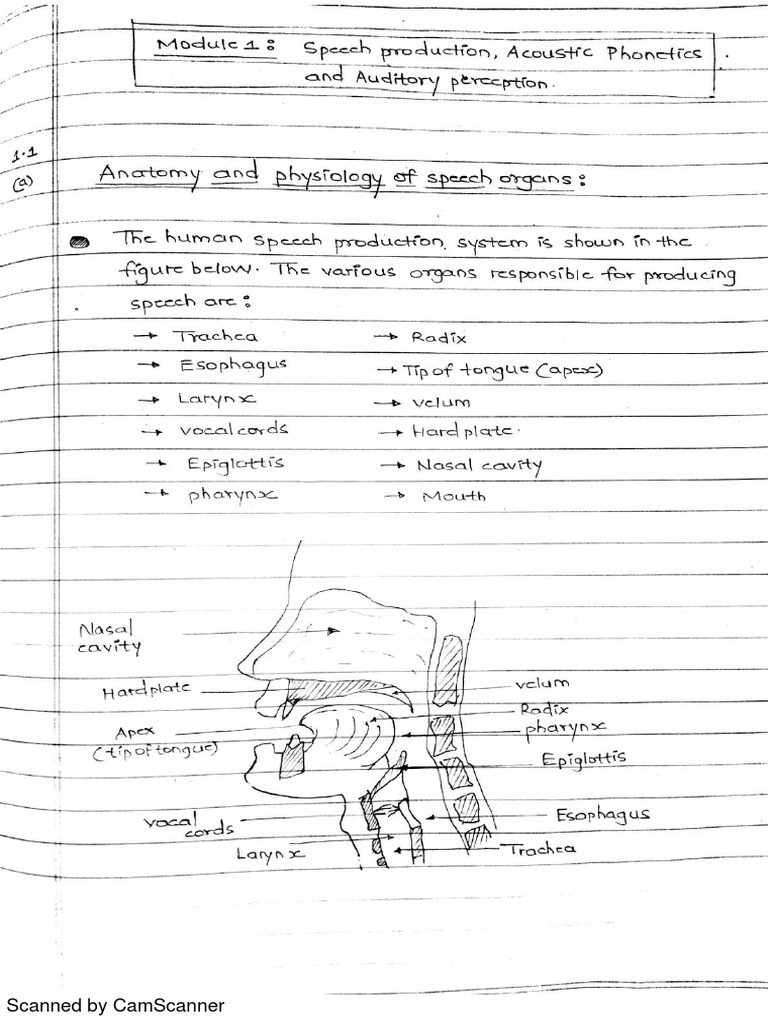 Module 1: Speech production, Acoustic Phonetics
and Auditory perception.
1.1
(a)
Anatomy and physiology of speech organs:
The human speech production system is shown in the
figure below. The various organs responsible for producing
speech are:
→ Trachea → Radix
→ Esophagus → Tip of tongue (apex)
→ Larynx → velum
→ vocal cords → Hard plate.
→ Epiglottis → Nasal cavity
→ pharynx → Mouth
Nasal
cavity
Hard plate
velum
Radix
Apex
(tip of tongue)
pharynx
Epiglottis
vocal
cords
Esophagus
Larynx
Trachea
Scanned by CamScanner